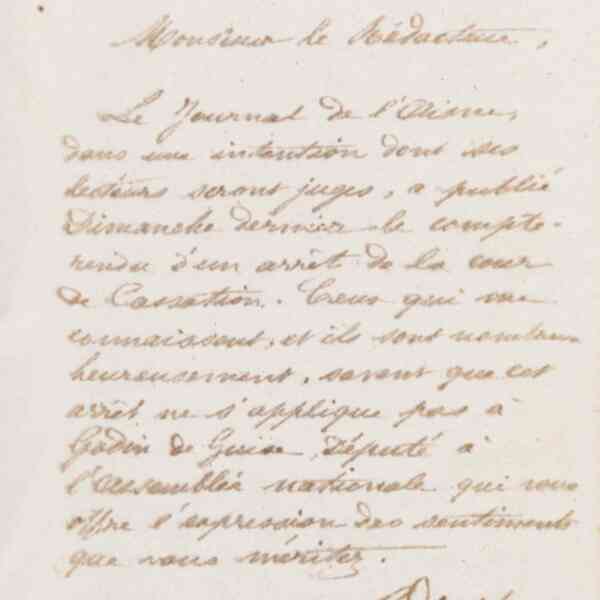 Monsieur le Rédacteur,
Le Journal de l'Aisne,
dans une intention dont ses
lecteurs seront juges, a publié
Dimanche dernier le compte-
rendu d'un arrêt de la cour
de Cassation. Ceux qui me
connaissent, et ils sont nombreux
heureusement, savent que cet
arrêt ne s'applique pas à
Godin de Guise, Député à
l'assemblée nationale qui vous
offre l'expression des sentiments
que vous méritez.